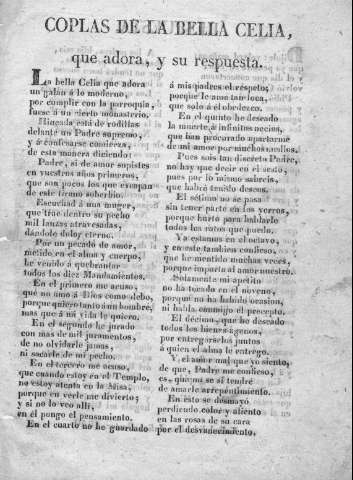 COPLAS DE LA BELLA CELIA,
que adora, y su respuesta.
La bella Celia que adora
un galán á lo moderno,
por cumplir con la parroquia,
fuese á un cierto monasterio,
Hincada está de rodillas
delante un Padre supremo,
y á confesarse comienza,
de esta manera diciendo:
Padre, si de amor supisteis
en vuestros años primeros,
que son pocos los que escapan
de este tirano soberbio.
Escuchad á una muger,
que trae dentro su pecho
mil lanzas atravesadas,
dándole dolor eterno.
Por un pecado de amor,
metido en el alma y cuerpo,
he venido á quebrantar
todos los diez Mandamientos.
En el primero me acuso,
que no amo á Dios como debo,
porque quiero tanto á un hombre,
mas que á mi vida le quiero.
En el segundo he jurado
con mas de mil juramentos,
de no olvidarle jamas,
ni sacarle de mi pecho.
En el tercero me acuso,
que cuando estoy en el Templo,
no estoy atenta en la Misa,
porque en verle me divierto;
y si no lo veo allí,
en él pongo el pensamiento.
En el cuarto no he guardado
á mis padres el respeto,
porque le amo tan loca,
que solo á él obedezco.
En el quinto he deseado
la muerte á infinitos necios,
que han procurado apartarme
de mi amor por muchos
Pues sois tan discreto Padre,
no hay que decir en el sexto,
pues por lo mismo sabreis,
que habré tenido deseos.
El sétimo no se pasa
sin tener parte en los yerros,
porque hurto para hablarle
todos los ratos que puedo.
Ya estamos en el octavo,
y en este tambien confieso,
que he mentido muchas veces,
porque importa al amor nuestro.
Solamente mi apetito
no ha tocado en el noveno,
porque no ha habido ocasion,
ni habla conmigo el precepto.
El décimo, que he deseado
todos los bienes agenos,
por entregarselos juntos
á quien el alma le entrego.
Y, el mal que yo siento,
de que, Padre me confieso,
es, que no sé si tendré
de amarle arrepentimiento.
En esto se desmayó
perdiendo color y aliento
en las rosas de su cara
por el desvanecimiento.